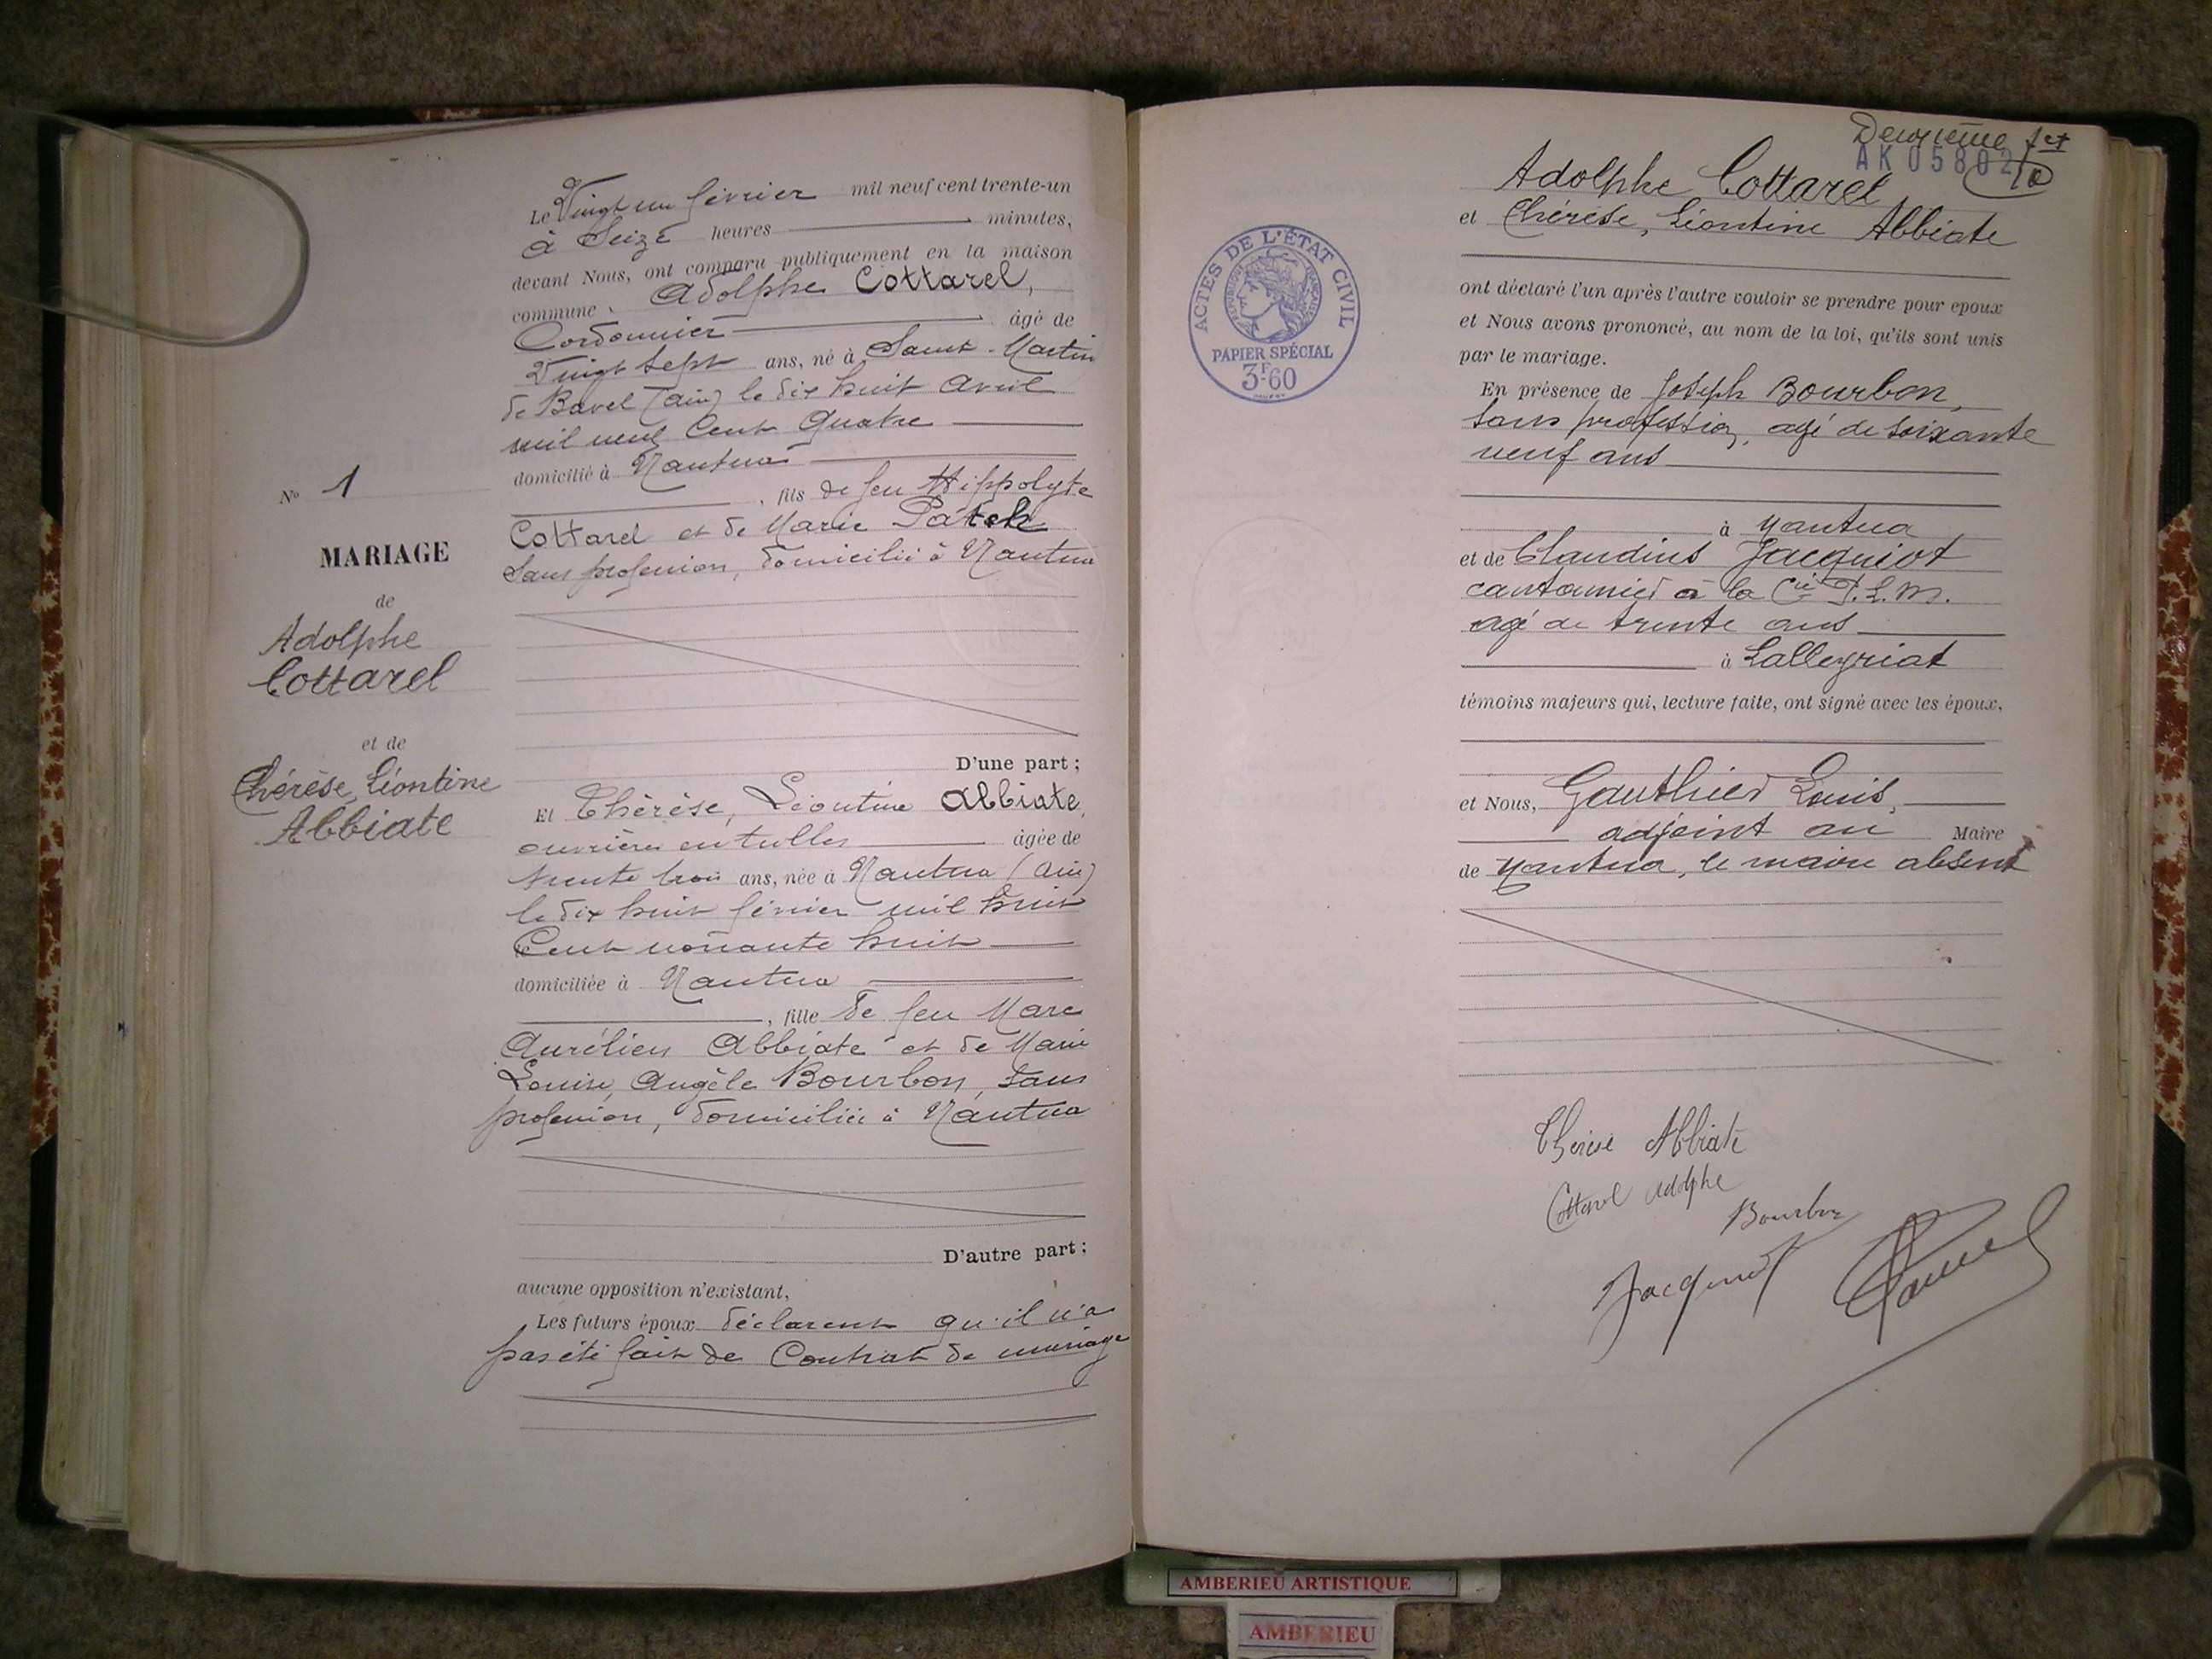 Le Vingt un février mil neuf cent trente-un
à Seize heures minutes,
devant Nous, ont comparu publiquement en la maison
commune Adolphe Cottarel,
Cordonnier âgé de
Vingt sept ans, né à Saint-Martin
de Bavel (ain) le dix huit avril
mil neuf Cent Quatre
domicilié à Nantua
, fils de feu Hippolyte
Cottarel et de Marie
Sans profession, domicilié à Nantua
N° 1
MARIAGE
de
Adolphe
Cottarel
et de
Thérèse, Léontine
Abbiate
D'une part ;
Et Thérèse, Léontine Abbiate,
ouvrière en tulles âgée de
trente trois ans, née à Nantua (ain)
le dix huit février mil huit
Cent nonante huit
domiciliée à Nantua
, fille de feu Marc
Aurélien Abbiate et de Marie
Louise, Angèle Bourbon, sans
profession, domiciliée à Nantua
D'autre part ;
aucune opposition n'existant,
Les futurs époux déclarent qu'il n'a
pas été fait de Contrat de mariage
Deuxième
AK 05802
Adolphe Cottarel
et Thérèse, Léontine Abbiate
ACTES DE L'ÉTAT CIVIL
RÉPUBLIQUE FRANÇAISE
PAPIER SPÉCIAL
3F60
ont déclaré l'un après l'autre vouloir se prendre pour epoux
et Nous avons prononcé, au nom de la loi, qu'ils sont unis
par le mariage.
En présence de Joseph Bourbon,
sans profession, agé de soixante
neuf ans
à Nantua
et de Claudius Jacquiot
cantonnier à la Cie P.L.M.
agé de trente ans
à Lalleyriat
témoins majeurs qui, lecture faite, ont signé avec les époux,
et Nous, Gauthier Louis,
adjoint au Maire
de Nantua, le maire absent
Thérèse Abbiate
Cottarel Adolphe
Bourbon
Jacquiot
AMBERIEU ARTISTIQUE
AMBERIEU